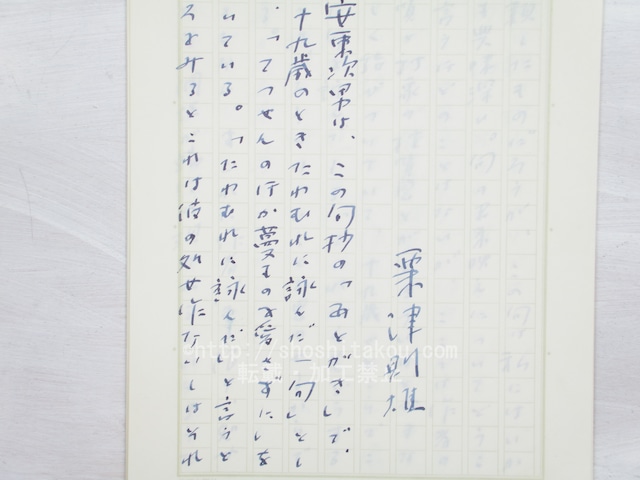 粟津則雄
安東次男は、この句抄の「あとがき」で、
十九歳のときたわむれに詠んだ一句」とし
、「てつせんのほか夢ものを愛さずに」を
いている。「たわむれに詠んだ」と言うと
ろをみるとこれは彼の処女作ないしはそれ
http://shoshitakou.com
転載・加工禁止